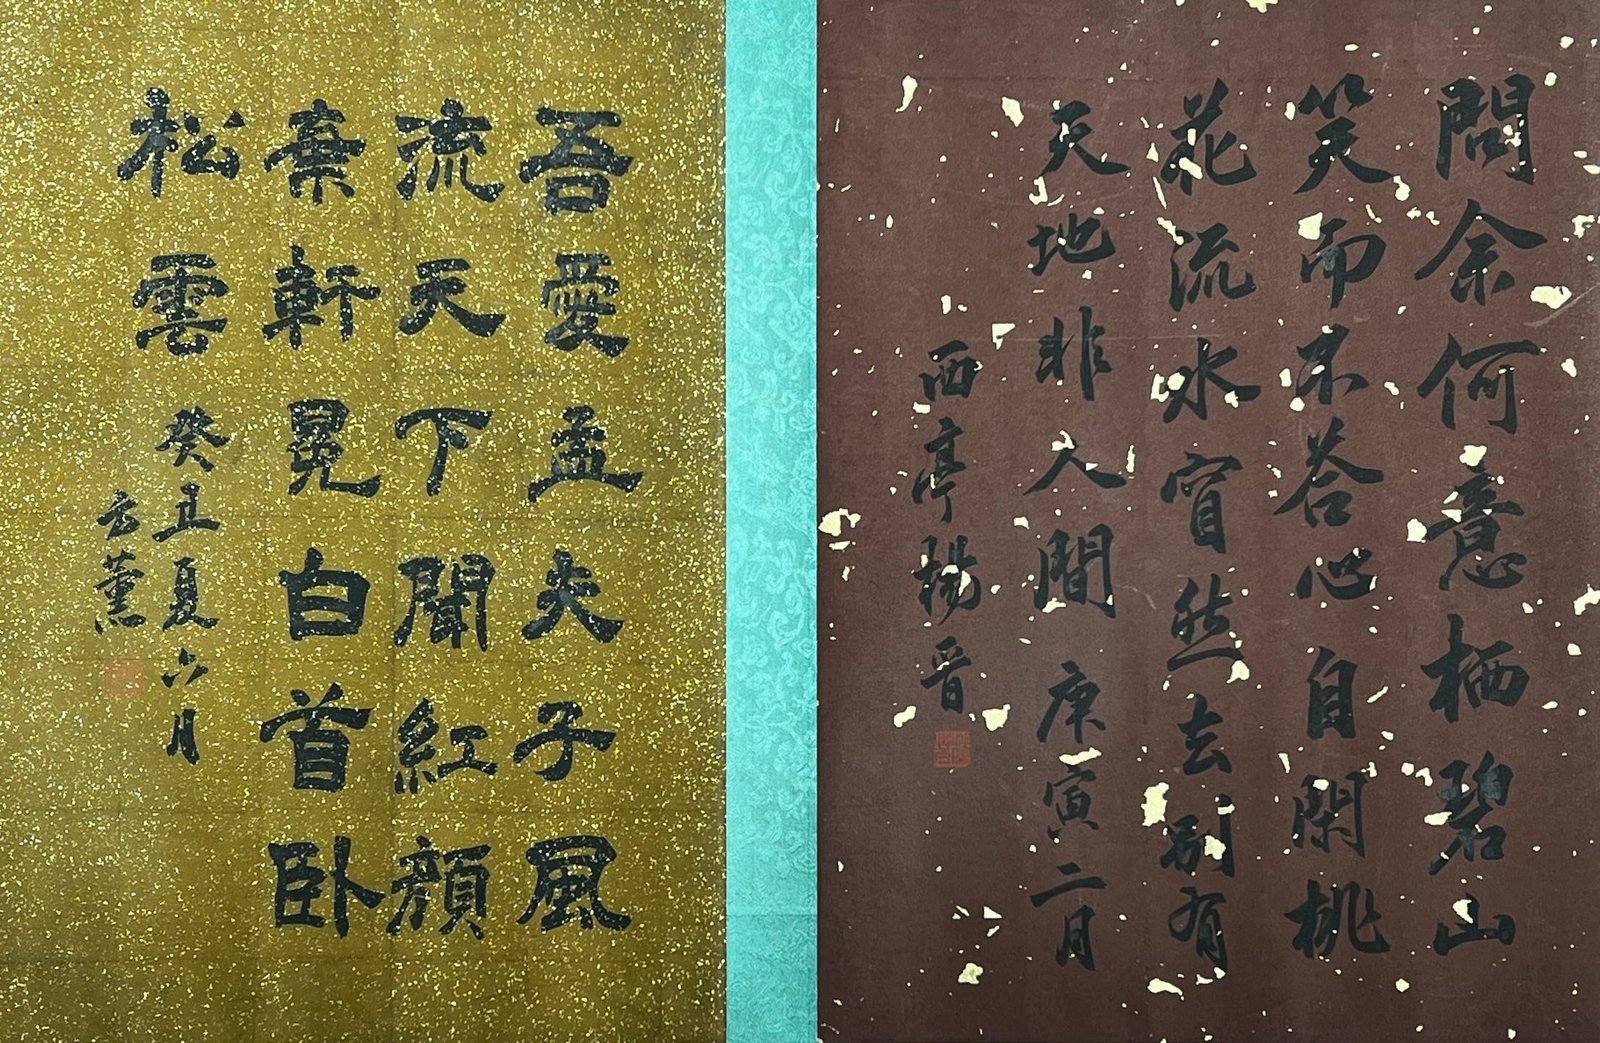 問余何意栖碧山
笑而不答心自閑桃
花流水窅然去別有
天地非人間 庚寅二月
西亭楊晉
吾愛孟夫子風
流天下聞紅顏
棄軒冕白首卧
松雲 癸丑夏六月
方薰